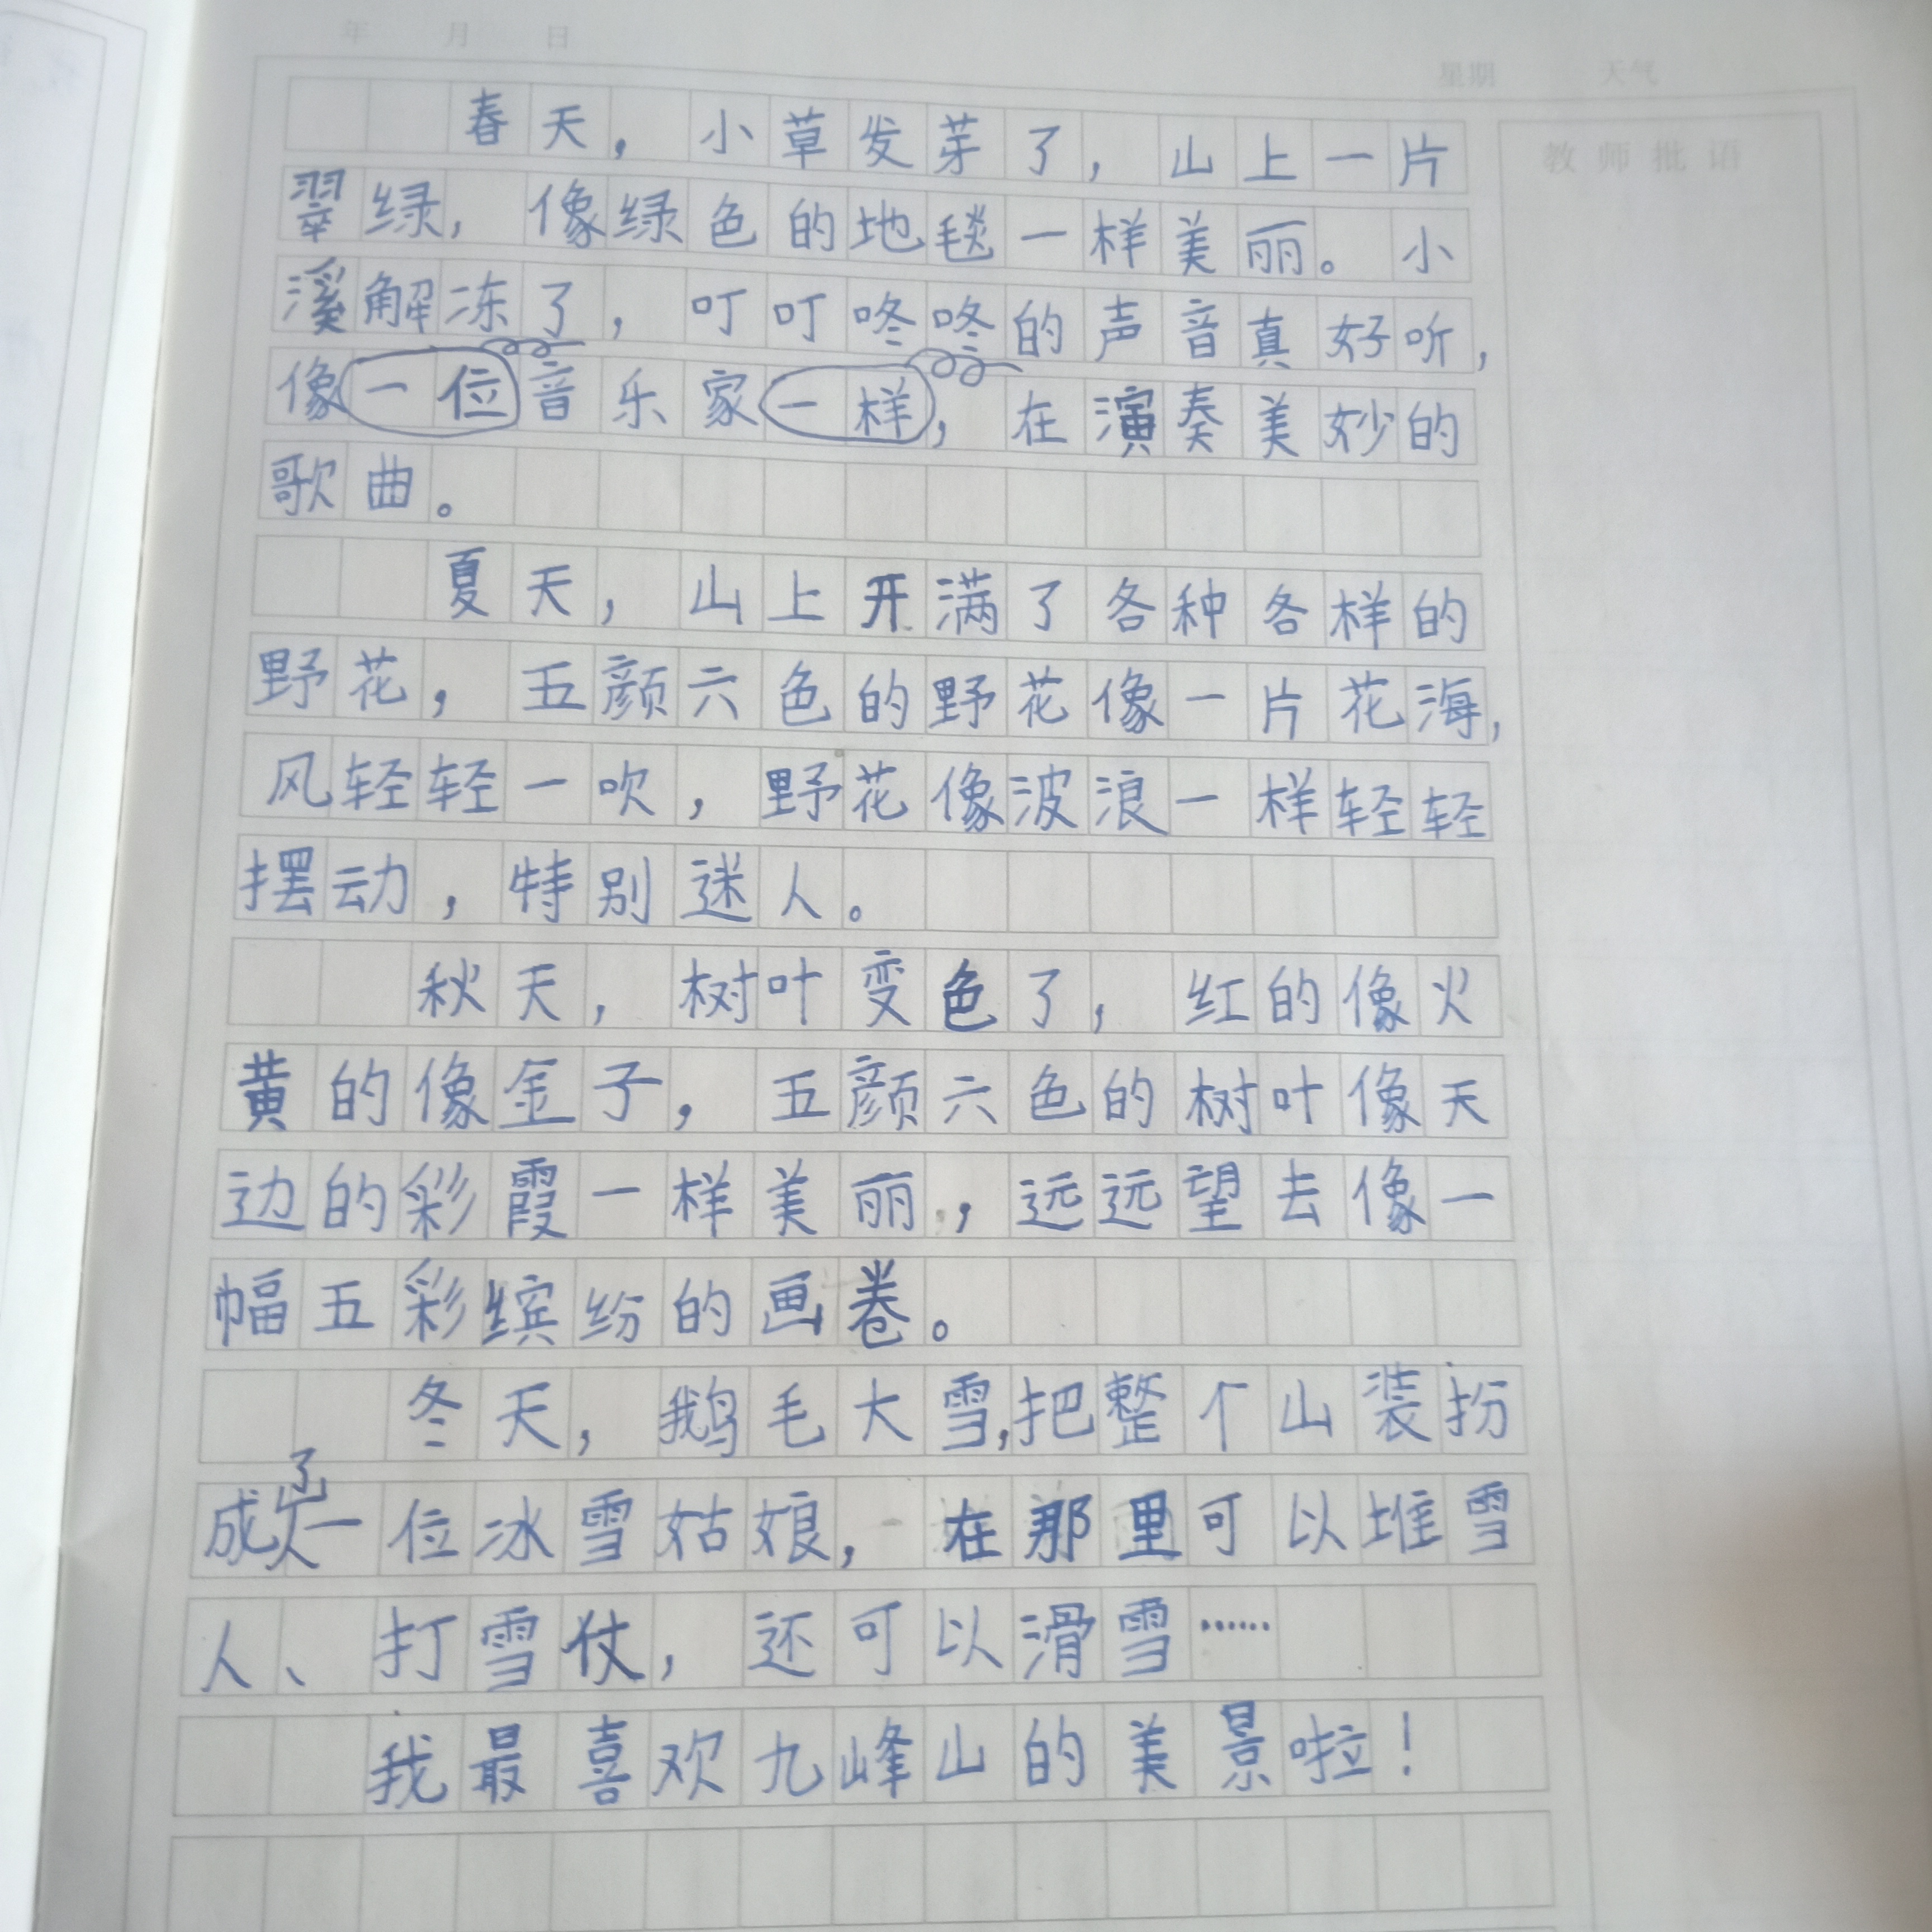 年 月 日
星期 天气
教师批语
春天，小草发芽了，山上一片
翠绿，像绿色的地毯一样美丽。小
溪解冻了，叮叮咚咚的声音真好听，
像一位音乐家一样，在演奏美妙的
歌曲。
夏天，山上开满了各种各样的
野花，五颜六色的野花像一片花海，
风轻轻一吹，野花像波浪一样轻轻
摆动，特别迷人。
秋天，树叶变色了，红的像火
黄的像金子，五颜六色的树叶像天
边的彩霞一样美丽，远远望去像一
幅五彩缤纷的画卷。
冬天，鹅毛大雪，把整个山装扮
成了一位冰雪姑娘，在那里可以堆雪
人、打雪仗，还可以滑雪……
我最喜欢九峰山的美景啦！